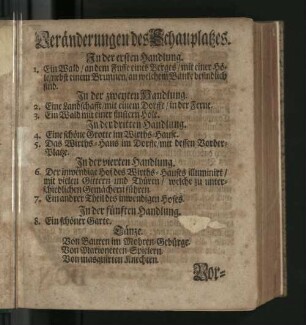 Veränderungen des Schauplatzes.
In der ersten Handlung.
1. Ein Wald / an dem Fusse eines Berges / mit einer Hö-
le / nebst einem Brunnen / an welchem Bäncke befindlich
sind.
In der zweyten Handlung.
2. Eine Landschafft / mit einem Dorffe / in der Ferne.
3. Ein Wald mit einer finstern Höle.
In der dritten Handlung.
4. Eine schöne Grotte im Wirths-Hause.
5. Das Wirths-Haus im Dorffe / mit dessen Vorder-
Platze.
In der vierten Handlung.
6. Der inwendige Hof des Wirths-Hauses illuminirt /
mit vielen Gittern und Thüren / welche zu unter-
schiedlichen Gemächern führen.
7. Ein andrer Theil des inwendigen Hofes.
In der fünften Handlung.
8. Ein schöner Garte.
Däntze.
Von Bauren im Mohren-Gebürge.
Von Marionetten-Spielern.
Von masquirten Knechten.
Vor-